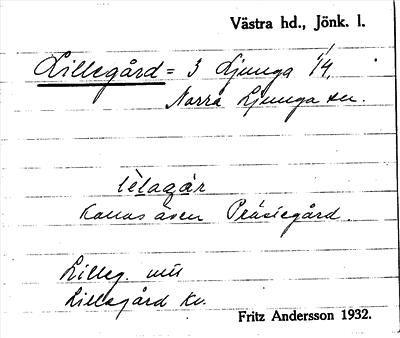 Västra hd., Jönk. l.
Lillegård = 3 Ljunga 1/4.
Norra Ljunga sn.
lìlagàr
Kallas även Präs̀tegård.
Lilleg. mtl
Lillegård Kv.
Fritz Andersson 1932.